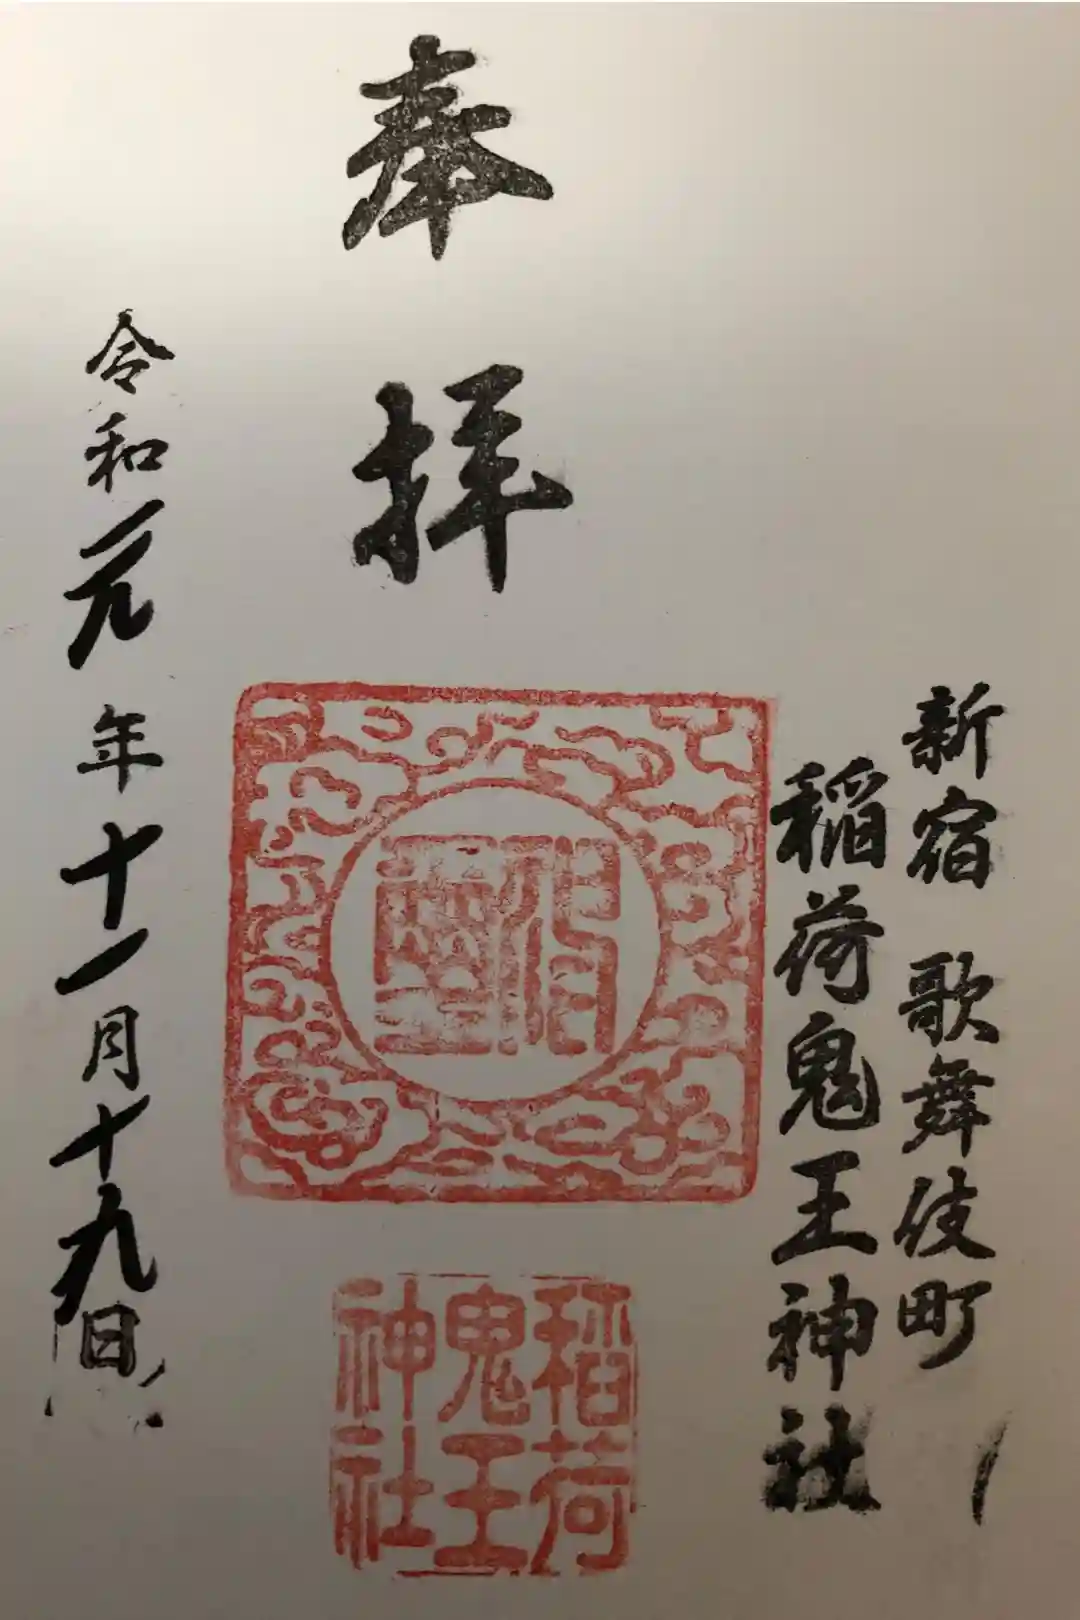 新宿 歌舞伎町
稲荷鬼王神社
奉拝
稲荷
鬼王
神社
令和元年十一月十九日